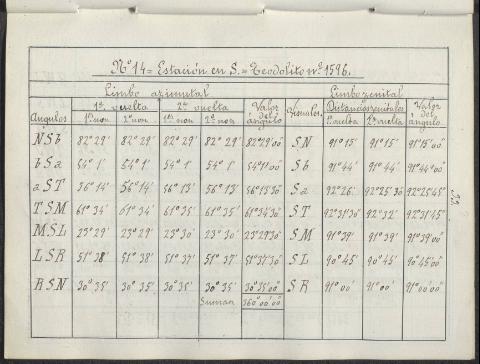 Nº 14 = Estación en S. = Teodolito nº 1596.
Limbo azimutal Limbo zenital
1ª vuelta 2ª vuelta Valor del ángulo Visuales. Distancias zenitales Valor del ángulo
Angulos 1er non 2º non 1er non 2º non 1ª vuelta 2ª vuelta
N S b 82° 29' 82° 29' 82° 29' 82° 29' 82°29'00" S N 91° 15' 91° 15' 91°15'00"
b S a 54° 1' 54° 1' 54° 1' 54° 1' 54°1'00" S b 91° 44' 91° 44' 91°44'00"
a S T 56° 14' 56° 14' 56° 13' 56° 13' 56°13'30" S a 92° 26' 92° 25' 30" 92°25'45"
T S M 61° 34' 61° 34' 61° 35' 61° 35' 61°34'30" S T 92° 31' 30" 92° 32' 92°31'45"
M S L 23° 29' 23° 29' 23° 30' 23° 30' 23°29'30" S M 91° 39' 91° 39' 91°39'00"
L S R 51° 38' 51° 38' 51° 37' 51° 37' 51°37'30" S L 90° 45' 90° 45' 90°45'00"
R S N 30° 35' 30° 35' 30° 35' 30° 35' 30°35'00" S R 91° 00' 91° 00' 91°00'00"
Suman 360°00'00"